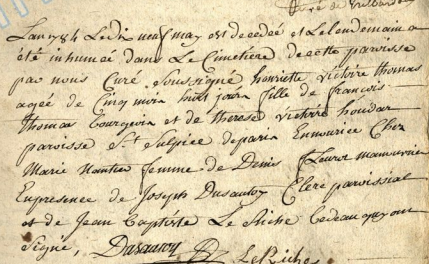 Curé de
L'an 1784 Le dix neuf may est decedée et Le lendemain a
été inhumée dans Le Cimetiere de cette paroisse
par nous Curé soussigné henriette victoire thomas
agée de Cinq mois huit jours fille de françois
thomas Bourgeois et de therese victoire houdar
paroisse St Sulpice de paris En nourice Chez
Marie femme de Denis manouvrier
En presence de Joseph Dusautoy Clerc paroissial
et de Jean Baptiste Le Riche Bedeau qui ont
signé, Dusautoy LeRiche